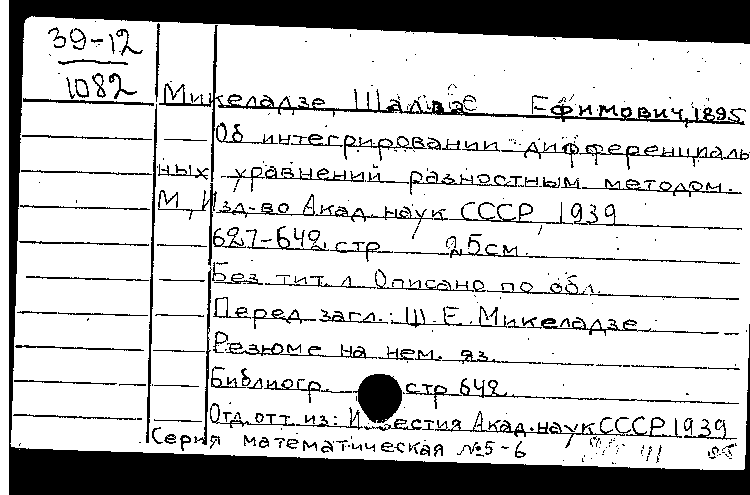 39-12
1082
Микеладзе, Шалва Ефимович, 1895
Об интегрировании дифференциаль
ных уравнений разностным методом.
М, Изд-во Акад. наук СССР, 1939
627-642 стр 25см.
Без тит. л. Описано по обл.
Перед загл.: Ш. Е. Микеладзе
Резюме на нем. яз.
Библиогр. стр 642.
Отд. отт. из: Известия Акад. наук СССР 1939
Серия математическая №5-6